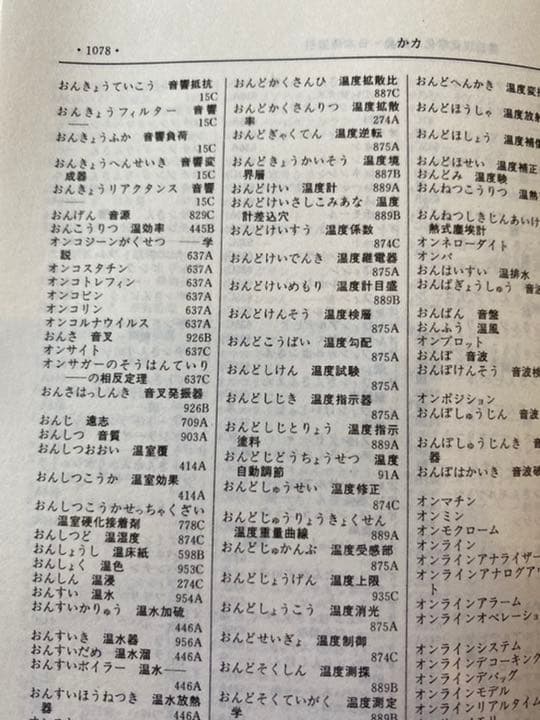 ・1078・
かカ
おんきょうていこう 音響抵抗
15C
おんきょうフィルター 音響
—— 15C
おんきょうふか 音響負荷
15C
おんきょうへんせいき 音響変
成器 15C
おんきょうリアクタンス 音響
—— 15C
おんげん 音源 829C
おんこうりつ 温効率 445B
オンコジーンがくせつ ——学
説 637A
オンコスタチン 637A
オンコトレフィン 637A
オンコビン 637A
オンコリン 637A
オンコルナウイルス 637A
おんさ 音叉 926B
オンサイト 637C
オンサガーのそうはんていり
——の相反定理 637C
おんさはっしんき 音叉発振器
926B
おんじ 遠志 709A
おんしつ 音質 903A
おんしつおおい 温室覆
414A
おんしつこうか 温室効果
414A
おんしつこうかせっちゃくざい
温室硬化接着剤 778C
おんしつど 温湿度 874C
おんしょうし 温床紙 598B
おんしょく 温色 953C
おんしん 温浸 274C
おんすい 温水 954A
おんすいかりゅう 温水加硫
446A
おんすいき 温水器 956A
おんすいだめ 温水溜 446A
おんすいボイラー 温水——
446A
おんすいほうねつき 温水放熱
器 446A
おんどかくさんひ 温度拡散比
887C
おんどかくさんりつ 温度拡散
率 274A
おんどぎゃくてん 温度逆転
875A
おんどきょうかいそう 温度境
界層 887B
おんどけい 温度計 889A
おんどけいさしこみあな 温度
計差込穴 889B
おんどけいすう 温度係数
874C
おんどけいでんき 温度継電器
875A
おんどけいめもり 温度計目盛
889B
おんどけんそう 温度検層
875A
おんどこうばい 温度勾配
875A
おんどしけん 温度試験
875A
おんどしじき 温度指示器
875A
おんどしじとりょう 温度指示
塗料 889A
おんどじどうちょうせつ 温度
自動調節 91A
おんどしゅうせい 温度修正
874C
おんどじゅうりょうきょくせん
温度重量曲線 889A
おんどじゅかんぶ 温度受感部
875A
おんどじょうげん 温度上限
935C
おんどしょうこう 温度消光
875A
おんどせいぎょ 温度制御
874C
おんどそくしん 温度測深
889B
おんどそくていがく 温度測定
学 889B
おんどへんかき 温度変換
おんどほうしゃ 温度放射
おんどほしょう 温度補償
おんどほせい 温度補正
おんどみ 温度
おんねつこうりつ 温熱
おんねつしきじんあいけ
熱式塵埃計
オンネローダイト
オンバ
おんはいすい 温排水
おんばぎょうしゅう 音波
おんばん 音盤
おんぷう 温風
オンプロット
おんぱ 音波
おんぱけんそう 音波検
オンポジション
おんぱしゅうじん 音波
おんぱしゅうじんき 音
器
おんぱはかいき 音波破
オンマチン
オンミン
オンモクローム
オンライン
オンラインアナライザー
オンラインアナログアウ
ト
オンラインアラーム
オンラインオペレーショ
オンラインシステム
オンラインデコーキング
オンラインデバッグ
オンラインモデル
オンラインリアルタイム